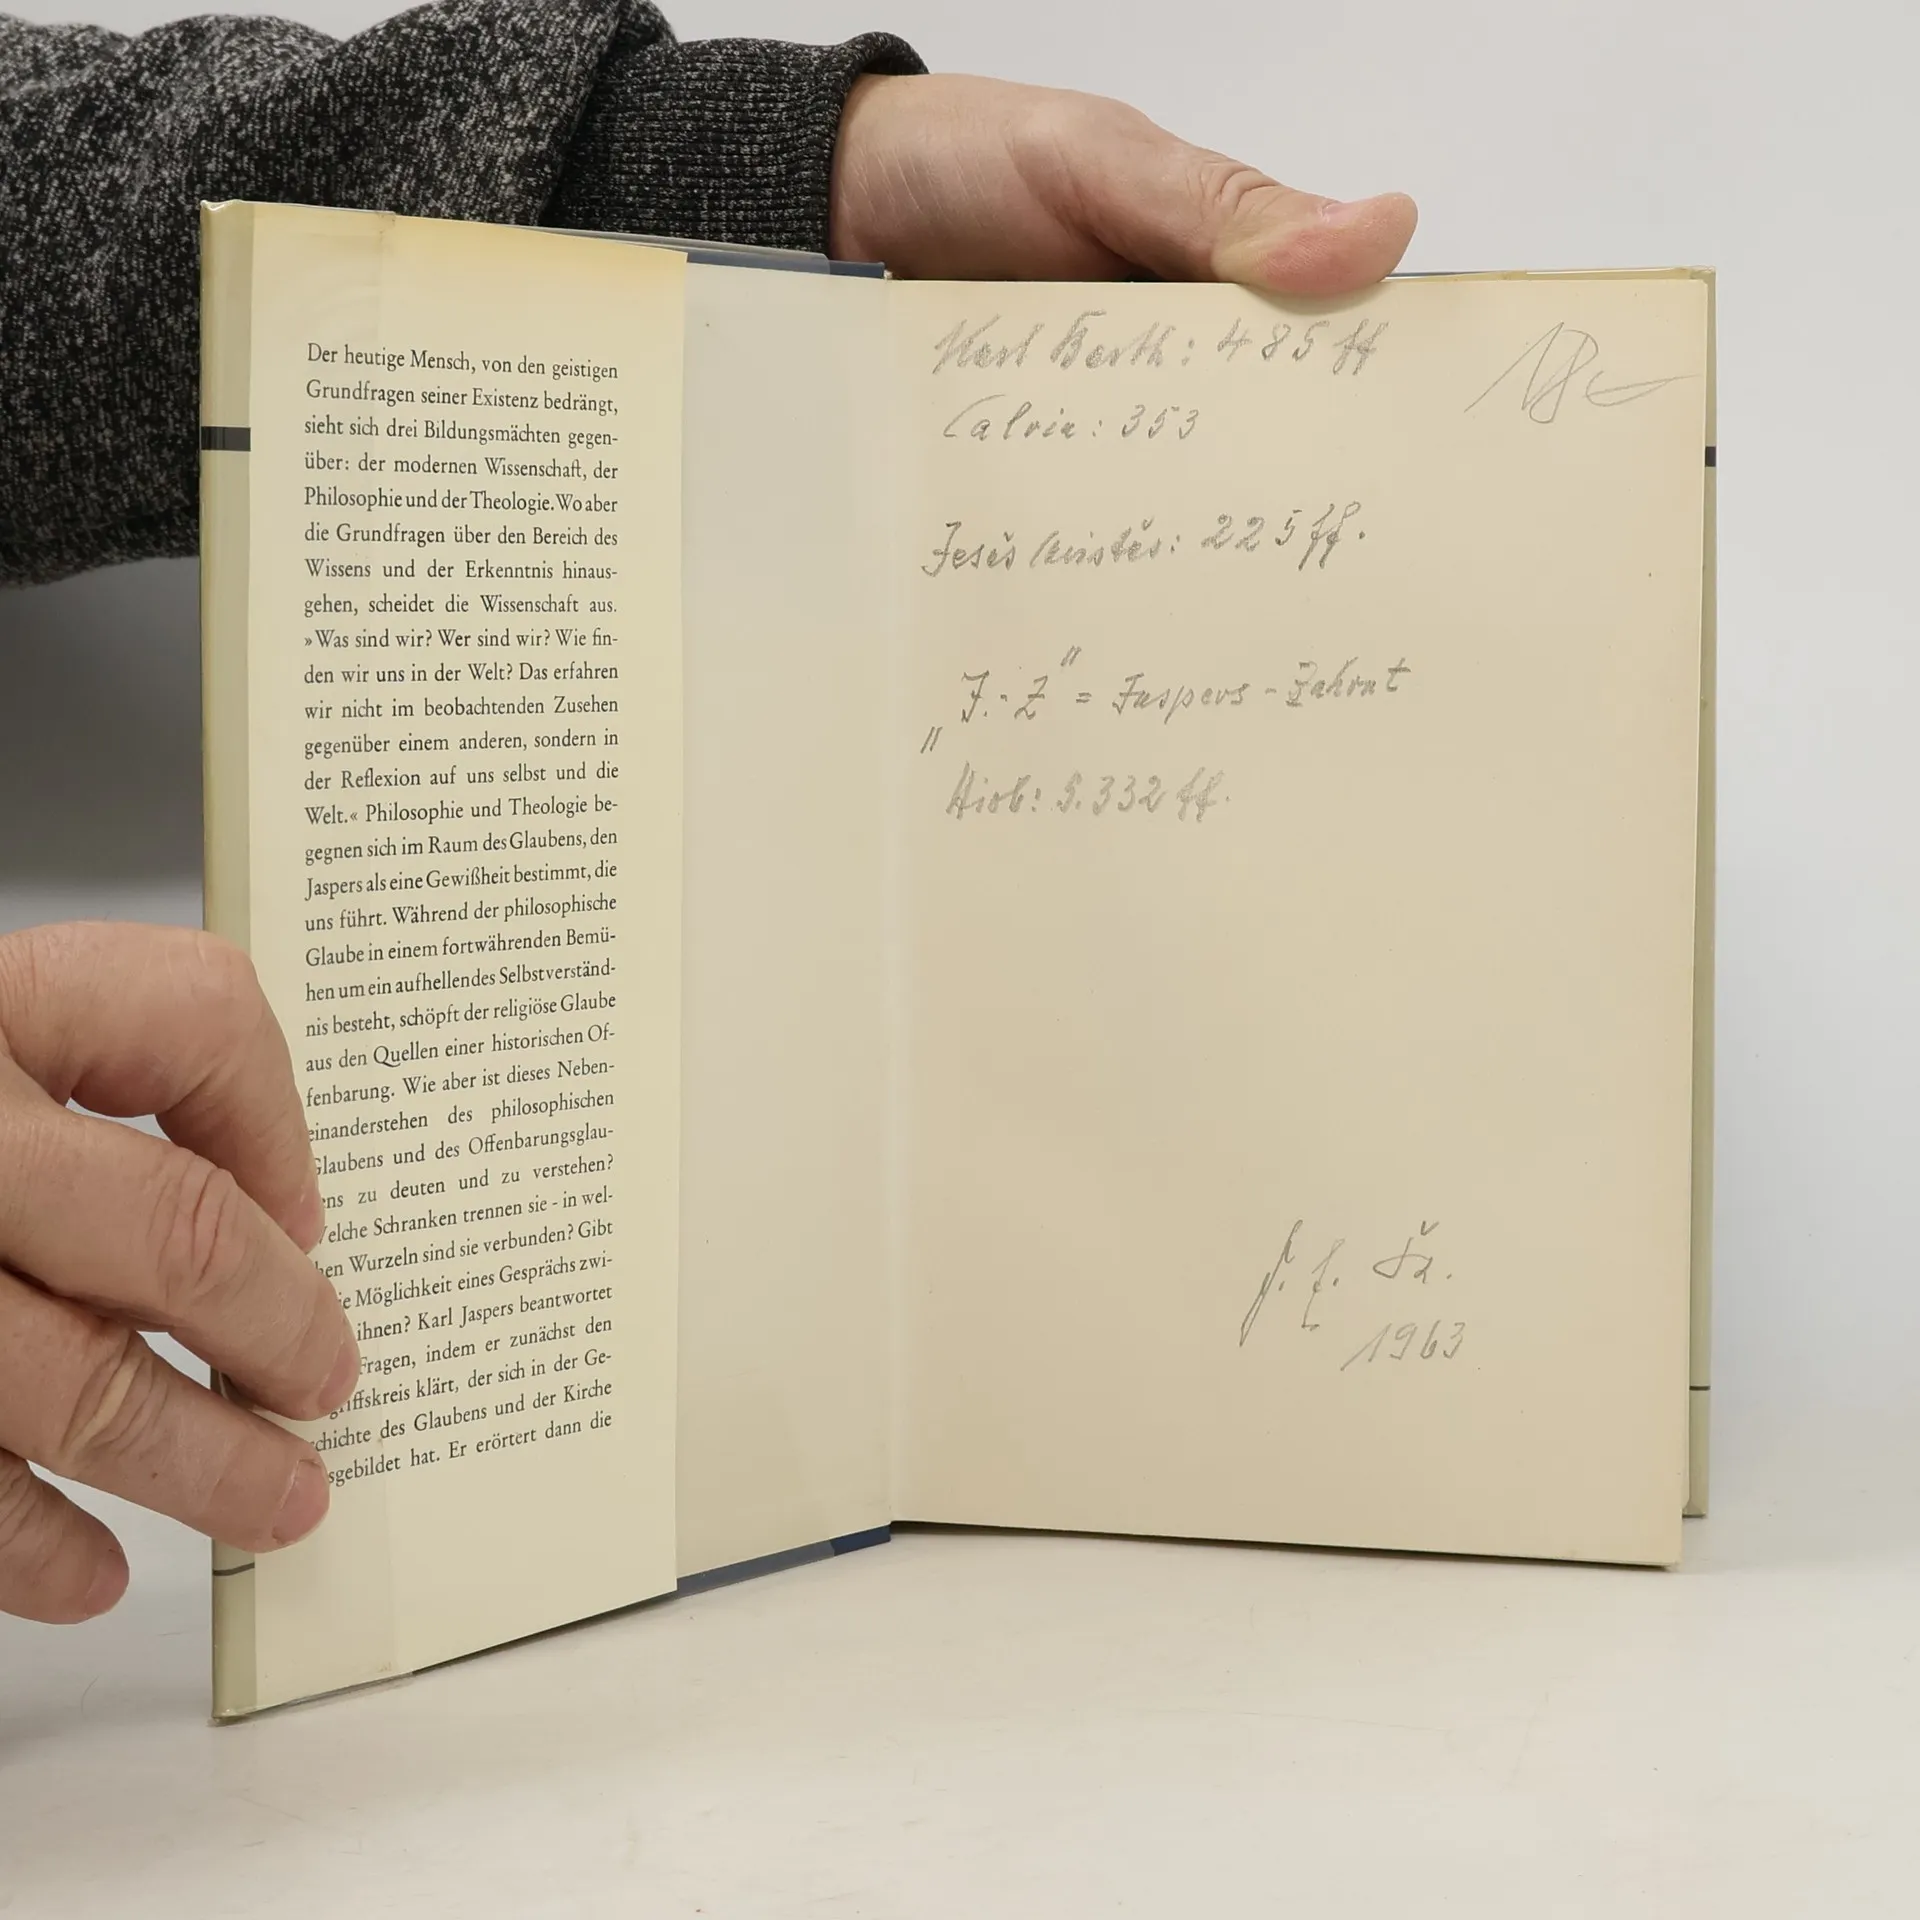 Der heutige Mensch, von den geistigen
Grundfragen seiner Existenz bedrängt,
sieht sich drei Bildungsmächten gegen-
über: der modernen Wissenschaft, der
Philosophie und der Theologie. Wo aber
die Grundfragen über den Bereich des
Wissens und der Erkenntnis hinaus-
gehen, scheidet die Wissenschaft aus.
»Was sind wir? Wer sind wir? Wie fin-
den wir uns in der Welt? Das erfahren
wir nicht im beobachtenden Zusehen
gegenüber einem anderen, sondern in
der Reflexion auf uns selbst und die
Welt.« Philosophie und Theologie be-
gegnen sich im Raum des Glaubens, den
Jaspers als eine Gewißheit bestimmt, die
uns führt. Während der philosophische
Glaube in einem fortwährenden Bemü-
hen um ein aufhellendes Selbstverständ-
nis besteht, schöpft der religiöse Glaube
aus den Quellen einer historischen Of-
fenbarung. Wie aber ist dieses Neben-
einanderstehen des philosophischen
Glaubens und des Offenbarungsglau-
ens zu deuten und zu verstehen?
Welche Schranken trennen sie - in wel-
hen Wurzeln sind sie verbunden? Gibt
ie Möglichkeit eines Gesprächs zwi-
ihnen? Karl Jaspers beantwortet
Fragen, indem er zunächst den
griffskreis klärt, der sich in der Ge-
schichte des Glaubens und der Kirche
sgebildet hat. Er erörtert dann die
Karl Barth: 485 ff
Calvin: 353
Jesus Christus: 225 ff.
"J.-Z" = Jaspers - Zahrnt
Hiob: S. 332 ff.
1963